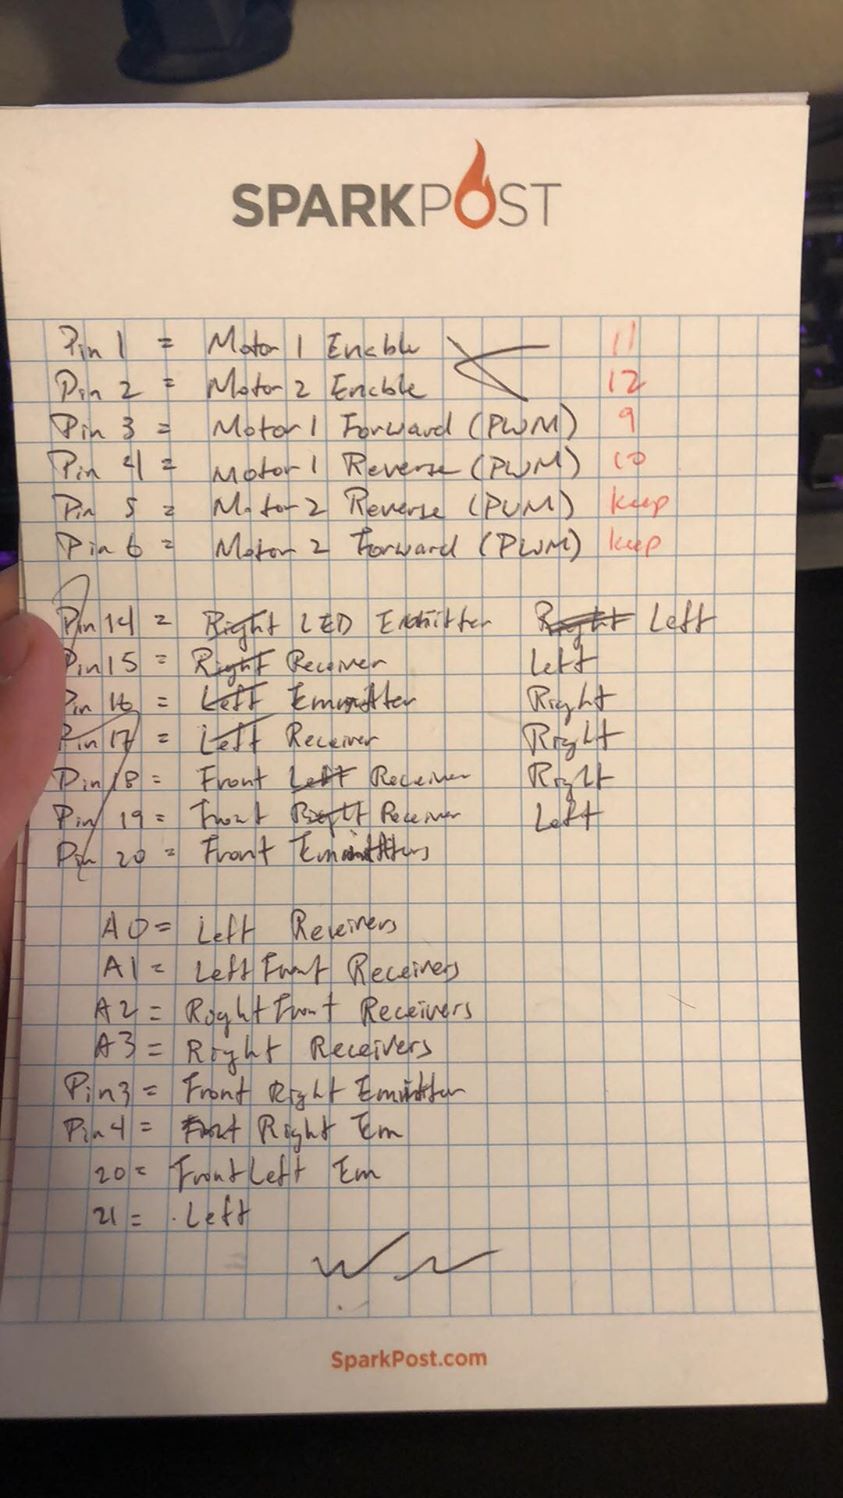 SPARKPOST
Pin 1 = Motor 1 Enable 11
Pin 2 = Motor 2 Enable 12
Pin 3 = Motor 1 Forward (PWM) 9
Pin 4 = Motor 1 Reverse (PWM) 10
Pin 5 = Motor 2 Reverse (PWM) keep
Pin 6 = Motor 2 Forward (PWM) keep
Pin 14 = Right LED Emitter Right Left
Pin 15 = Right Receiver Left
Pin 16 = Left Emitter Right
Pin 17 = Left Receiver Right
Pin 18 = Front Left Receiver Right
Pin 19 = Front Right Receiver Left
Pin 20 = Front Emitters
A0 = Left Receivers
A1 = Left Front Receivers
A2 = Right Front Receivers
A3 = Right Receivers
Pin3 = Front Right Emitter
Pin4 = Right Em
20 = Front Left Em
21 = Left
SparkPost.com